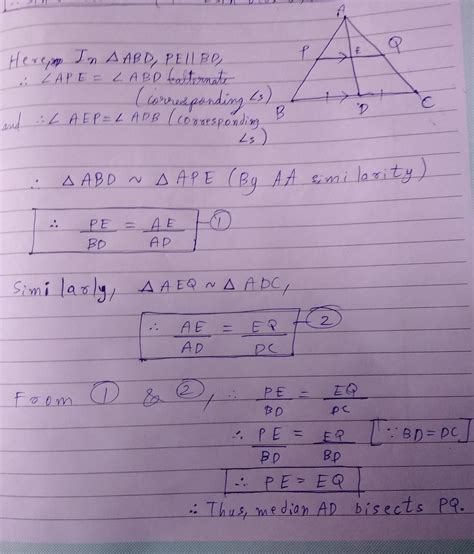 A
P
E
Q
B
D
C
Here, In △ABD, PE||BD,
∴ ∠APE = ∠ABD
(corresponding ∠s)
and ∴∠ AEP = ∠ADB (corresponding
∠s)
∴ △ABD ~ △APE (By AA similarity)
∴ PE/BD = AE/AD — ①
Similarly, △AEQ ~ △ADC,
∴ AE/AD = EQ/DC — ②
From ① & ②, ∴ PE/BD = EQ/DC
∴ PE/BD = EQ/BD [∵BD=DC]
∴ PE = EQ
∴ Thus, median AD bisects PQ.